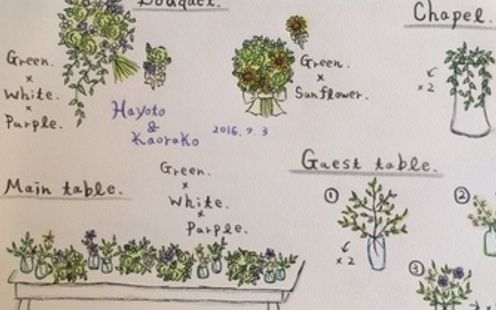 Bouquet.
Chapel
Green.
×
White.
×
Purple.
Green.
×
Sunflower.
×2
Hayoto
&
Kaorako
2016. 9. 3
Green.
×
White.
×
Purple.
Guest table.
Main table.
①
×2
②
③